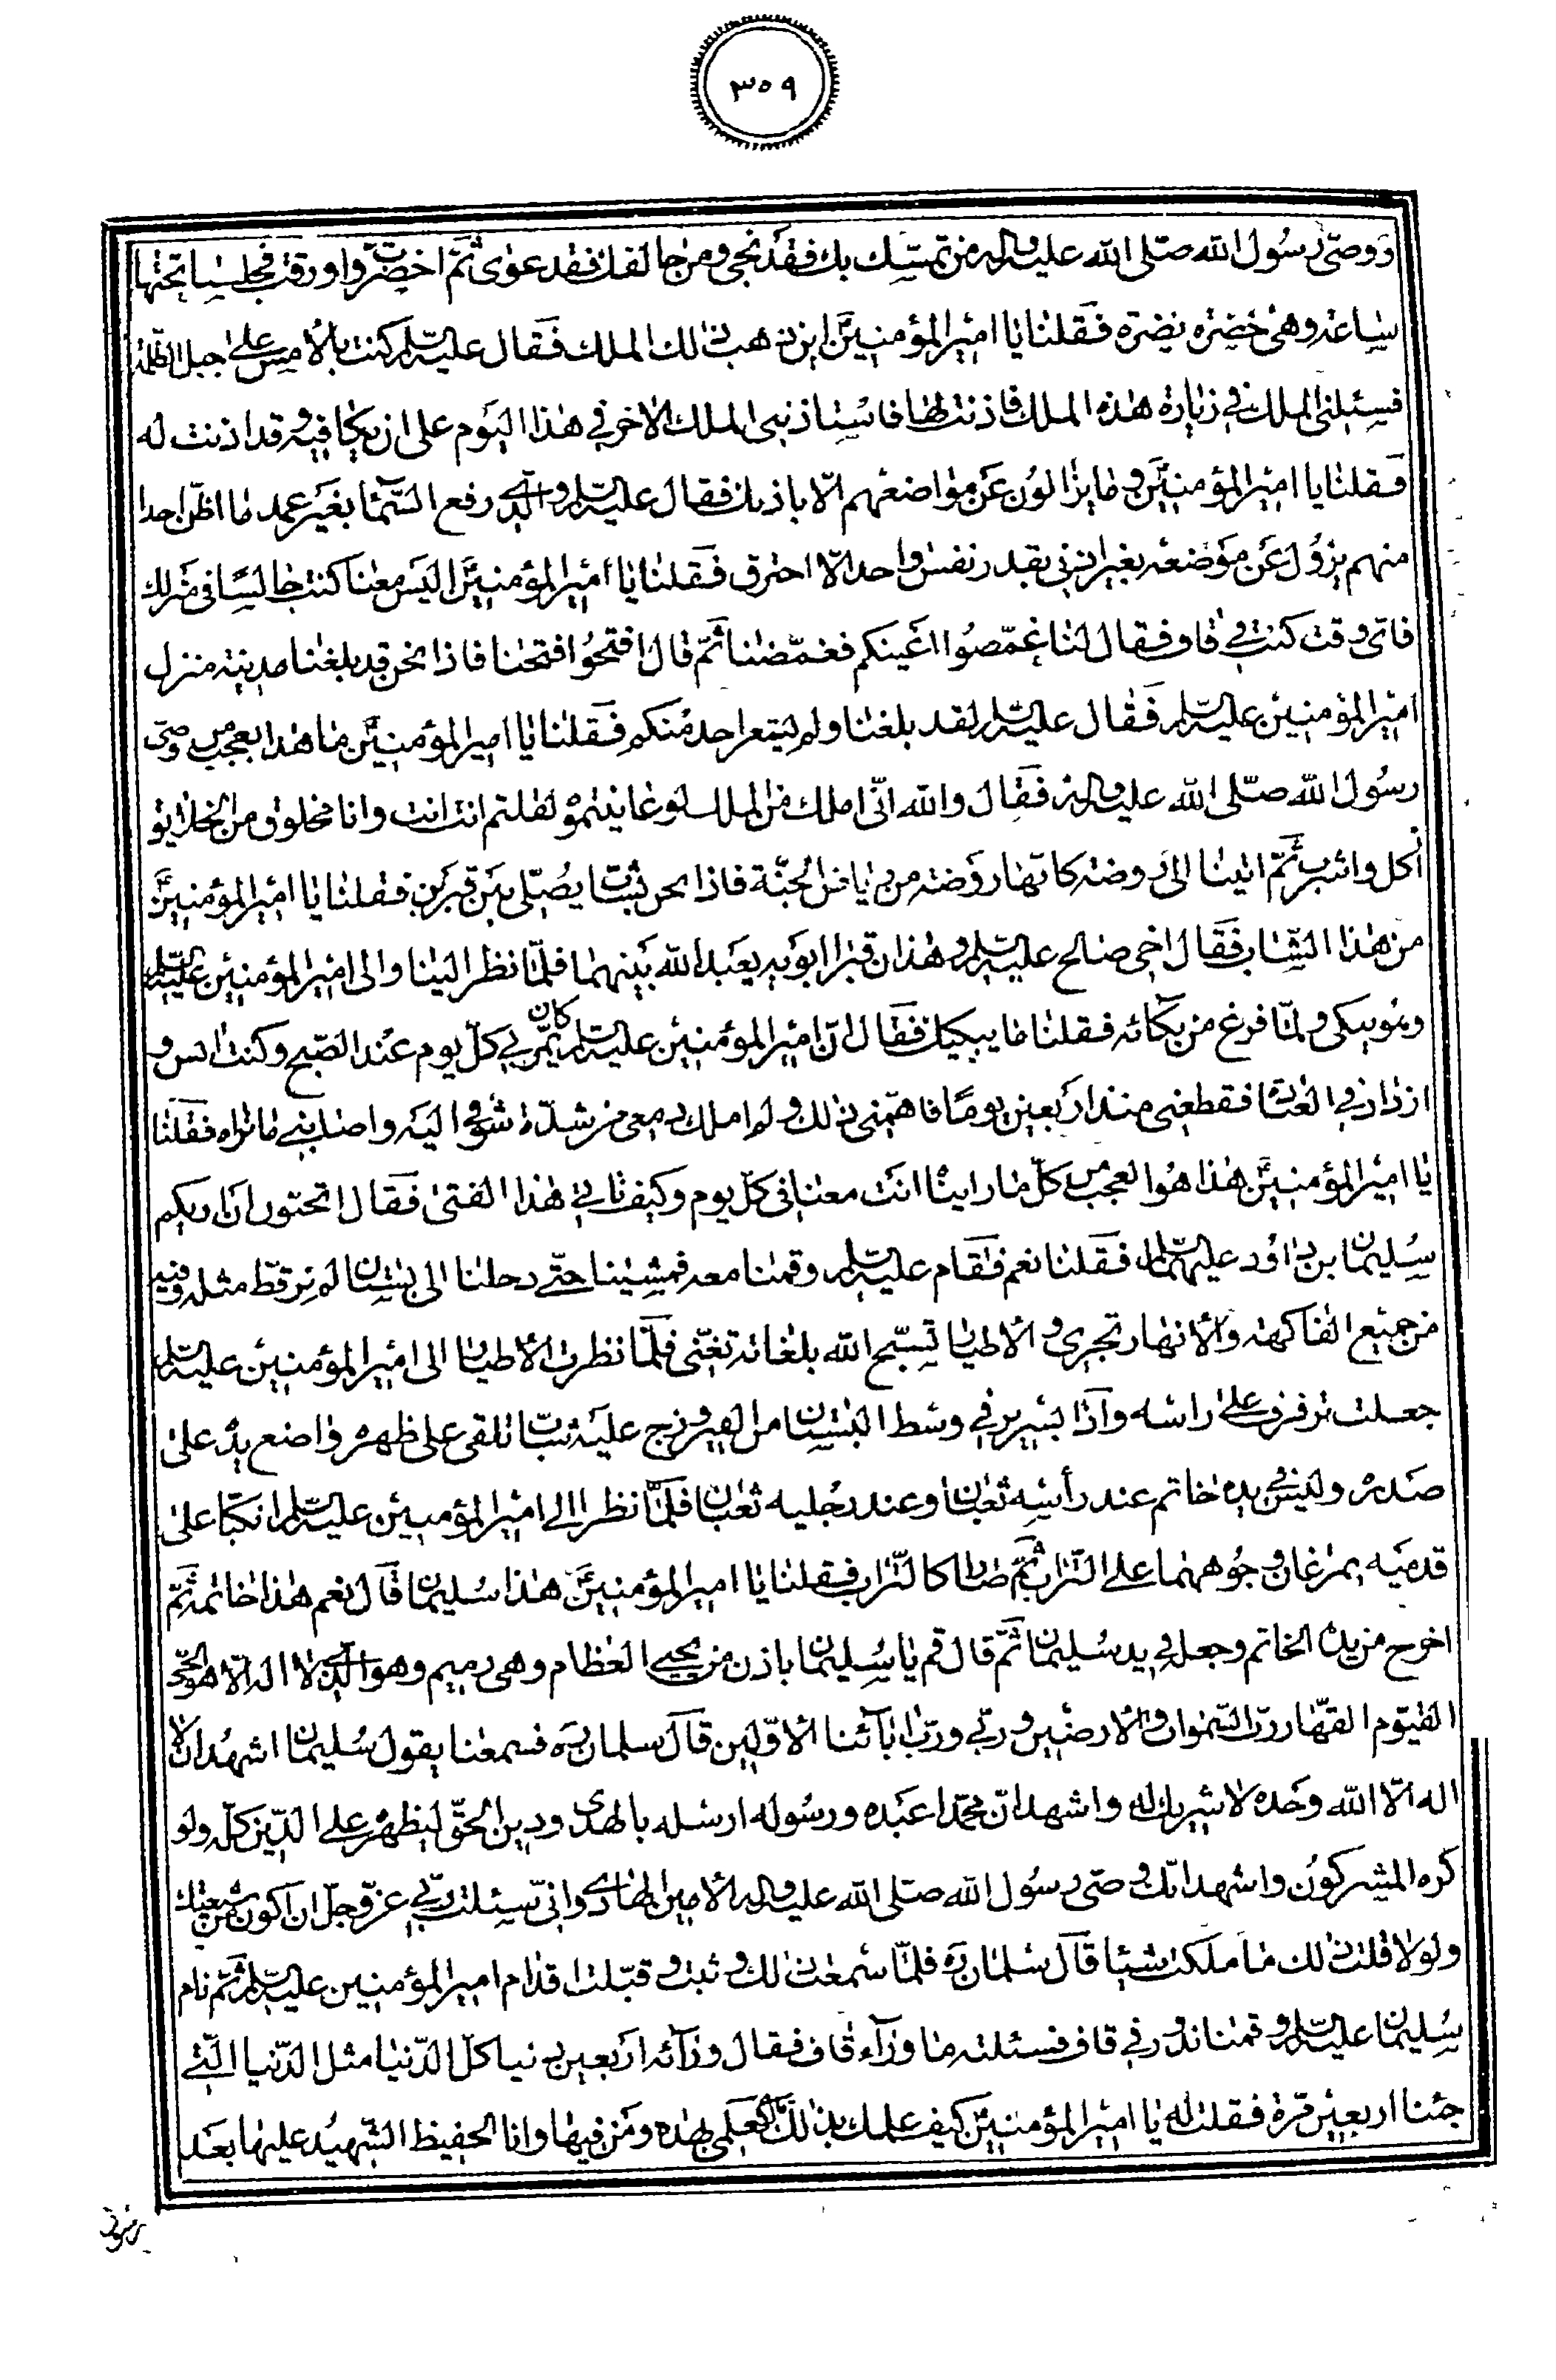 ٣٠٩
ووصیّ رسول الله صلّى الله علیه واله من تمسّك بك فقد نجى ومن خالفك فقد غوى ثمّ اخضرّت واورقت فجلسنا تحتها
ساعة وهى خضرة نضرة فقلنا یا امیر المؤمنین این ذهب ذلك الملك فقال علیه السلم كنت بالأمس على جبل الظلمة
فسئلنى الملك فی زیارة هذه الملك فاذنت لها فاستاذننى الملك الاخر فی هذا الیوم على ان یكافیه وقد اذنت له
فقلنا یا امیر المؤمنین وما یزالون عن مواضعهم الّا باذنك فقال علیه السلم والّذى رفع السّماء بغیر عمد ما اظنّ احدا
منهم یزول عن موضعه بغیر اذنى بقدر نفس واحد الّا احترق فقلنا یا امیر المؤمنین الیس معنا كنت جالسا فی منزلك
فایّ وقت كنت فی قاف فقال لنا غمّضوا اعینكم فغمّضنا ثمّ قال افتحوا افتحنا فاذا نحن قد بلغنا مدینة منزل
امیر المؤمنین علیه السلم فقال علیه السلم لقد بلغنا ولم یشعر احد منكم فقلنا یا امیر المؤمنین ما هذا بعجب من وصیّ
رسول الله صلّى الله علیه واله فقال والله انّى املك من الملك لو عاینتموه لقلتم انت انت وانا مخلوق من الخلایق
آكل واشرب ثمّ اتینا الى روضة كانّها روضة من ریاض الجنّة فاذا نحن بشابّ یصلّى بین قبرین فقلنا یا امیر المؤمنین
من هذا الشّاب فقال اخى صالح علیه السلم وهذان قبرا ابویه یعبد الله بینهما فلمّا نظر الینا والى امیر المؤمنین علیه السلم
وهو یبكى ولمّا فرغ من بكائه فقلنا ما یبكیك فقال انّ امیر المؤمنین علیه السلم كان یمرّ بی كلّ یوم عند الصّبح وكنت انس و
ازداد فی العبادة فقطعنى منذ اربعین یوما فاهمّنى ذلك ولم املك دمعى من شدّة شوقى الیه واصابنى ما تراه فقلنا
یا امیر المؤمنین هذا هو العجب من كلّ ما راینا انت معنا فى كلّ یوم وكیف تاتى هذا الفتى فقال اتحبّون ان اریكم
سلیمان بن داود علیهما السلام فقلنا نعم فقام علیه السلم وقمنا معه فمشینا حتّى دخلنا الى بستان لم نر قطّ مثله وفیه
من جمیع الفاكهة والأنهار تجرى والأطیار تسبّح الله بلغاته تغنّى فلمّا نظرت الأطیار الى امیر المؤمنین علیه السلم
جعلت ترفرف على راسه واذا بسریر فی وسط البستان من الفیروزج علیه شابّ تلقى على ظهره واضع یده على
صدره ولیس فى یده خاتم عند رأسه ثعبان وعند رجلیه ثعبان فلمّا نظرا الى امیر المؤمنین علیه السلم انكبّا على
قدمیه یمرغان وجوههما على التّراب ثمّ صارا كالتّراب فقلنا یا امیر المؤمنین هذا سلیمان قال نعم هذا خاتمه ثمّ
اخرج من یده الخاتم وجعل فی ید سلیمان ثمّ قال قم یا سلیمان باذن من یحیى العظام وهى رمیم وهو الّذى لا اله الّا هو الحیّ
القیّوم القهّار ربّ السّموات والأرضین وربّى وربّ ابآئنا الأوّلین قال سلمان ره فسمعنا یقول سلیمان اشهد ان لا
اله الّا الله وحده لا شریك له واشهد انّ محمّدا عبده ورسوله ارسله بالهدى ودین الحقّ لیظهره على الدّین كلّه ولو
كره المشركون واشهد انّك وصیّ رسول الله صلّى الله علیه واله الأمین الهادى وانّى سئلت ربّى عزّ وجلّ ان اكون من شیعتك
ولولا قلت ذلك ما ملكت شیئا قال سلمان ره فلمّا سمعت ذلك وثبت وقبّلت اقدام امیر المؤمنین علیه السلم ثمّ نام
سلیمان علیه السلم وقمنا ندور فی قاف فسئلته ما ورآء قاف فقال ورآئه اربعین دنیا كلّ الدّنیا مثل الدّنیا الّتى
جئنا اربعین مرة فقلت له یا امیر المؤمنین كیف علمك بذلك قال كعلمى بهذه ومن فیها وانا الحفیظ الشّهید علیها بعد